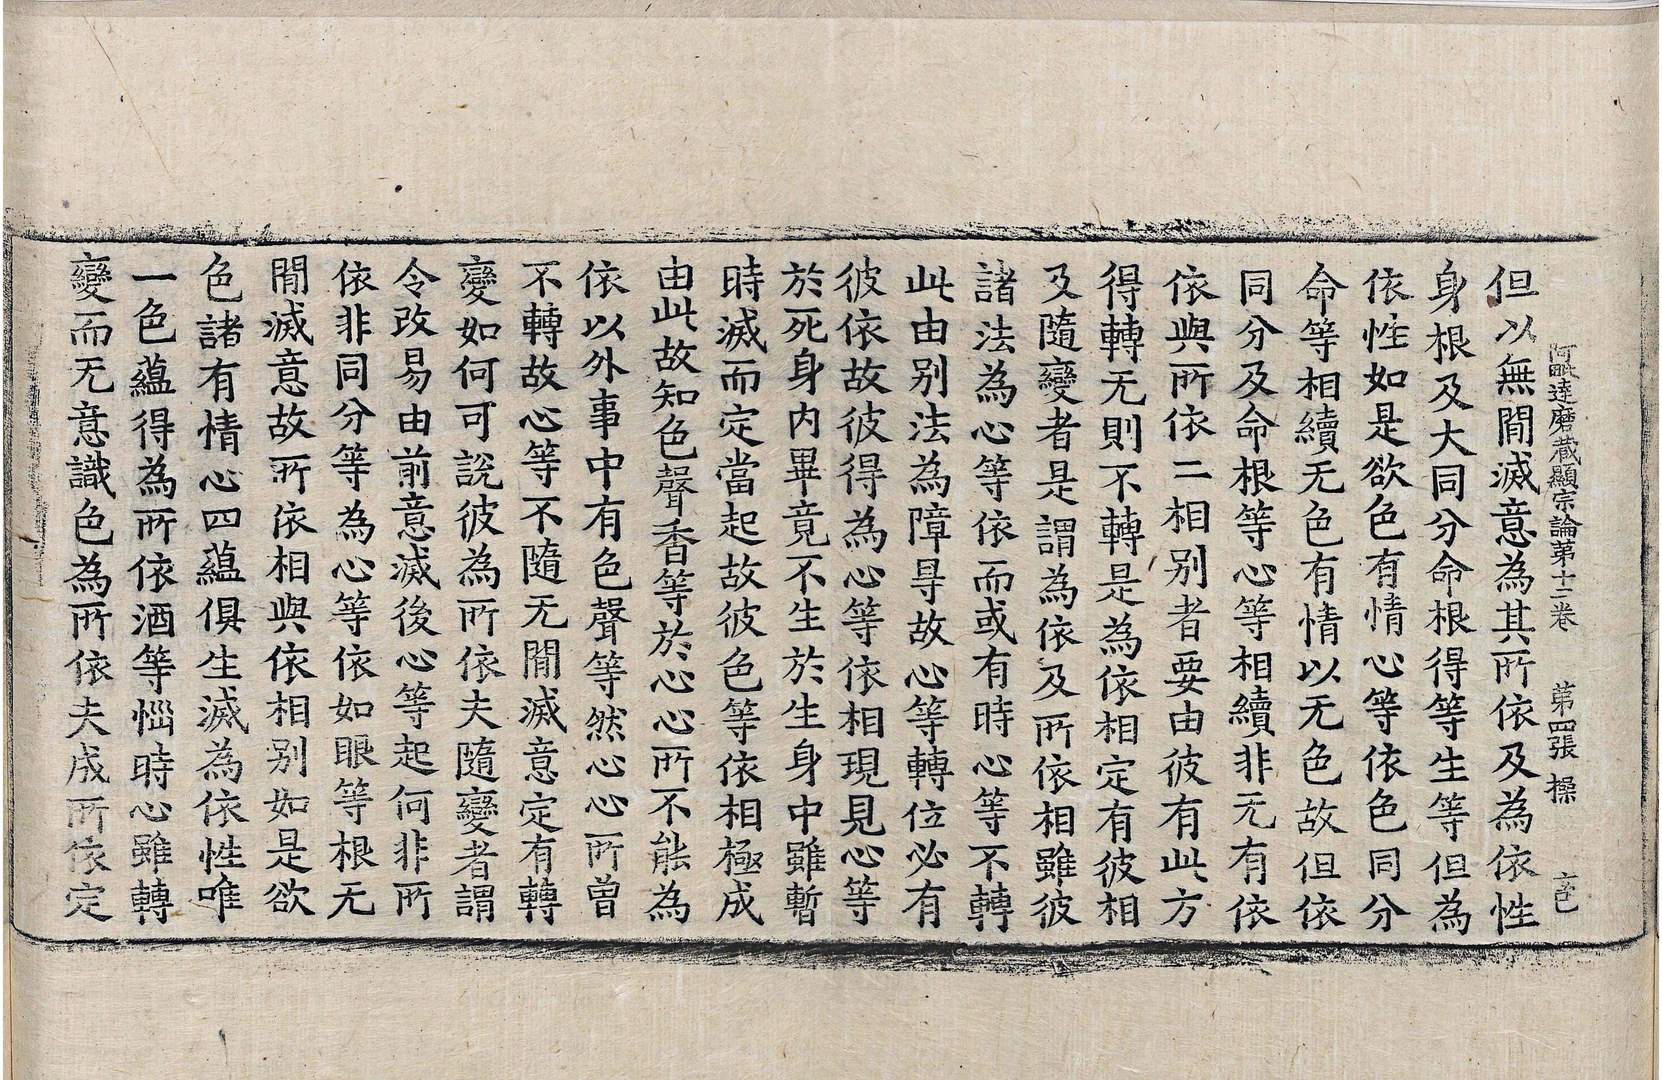 阿毗達磨蔵顯宗論第十三卷 第四張 操
但以無間滅意為其所依及為依性
身根及大同分命根得等生等但為
依性如是欲色有情心等依色同分
命等相續无色有情以无色故但依
同分及命根等心等相續非无有依
依與所依二相別者要由彼有此方
得轉无則不轉是為依相定有彼相
及隨變者是謂為依及所依相雖彼
諸法為心等依而或有時心等不轉
此由別法為障㝵故心等轉位必有
彼依故彼得為心等依相現見心等
於死身內畢竟不生於生身中雖暫
時滅而定當起故彼色等依相極成
由此故知色聲香等於心心所不能為
依以外事中有色聲等然心心所曾
不轉故心等不隨无間滅意定有轉
變如何可說彼為所依夫隨變者謂
令改易由前意滅後心等起何非所
依非同分等為心等依如眼等根无
間滅意故所依相與依相別如是欲
色諸有情心四蘊俱生滅為依性唯
一色蘊得為所依酒等惱時心雖轉
變而无意識色為所依夫成所依定